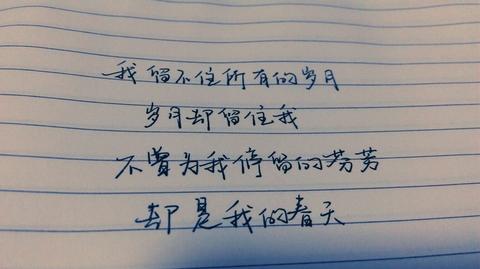 我留不住所有的岁月
岁月却留住我
不曾为我停留的芬芳
却是我的春天